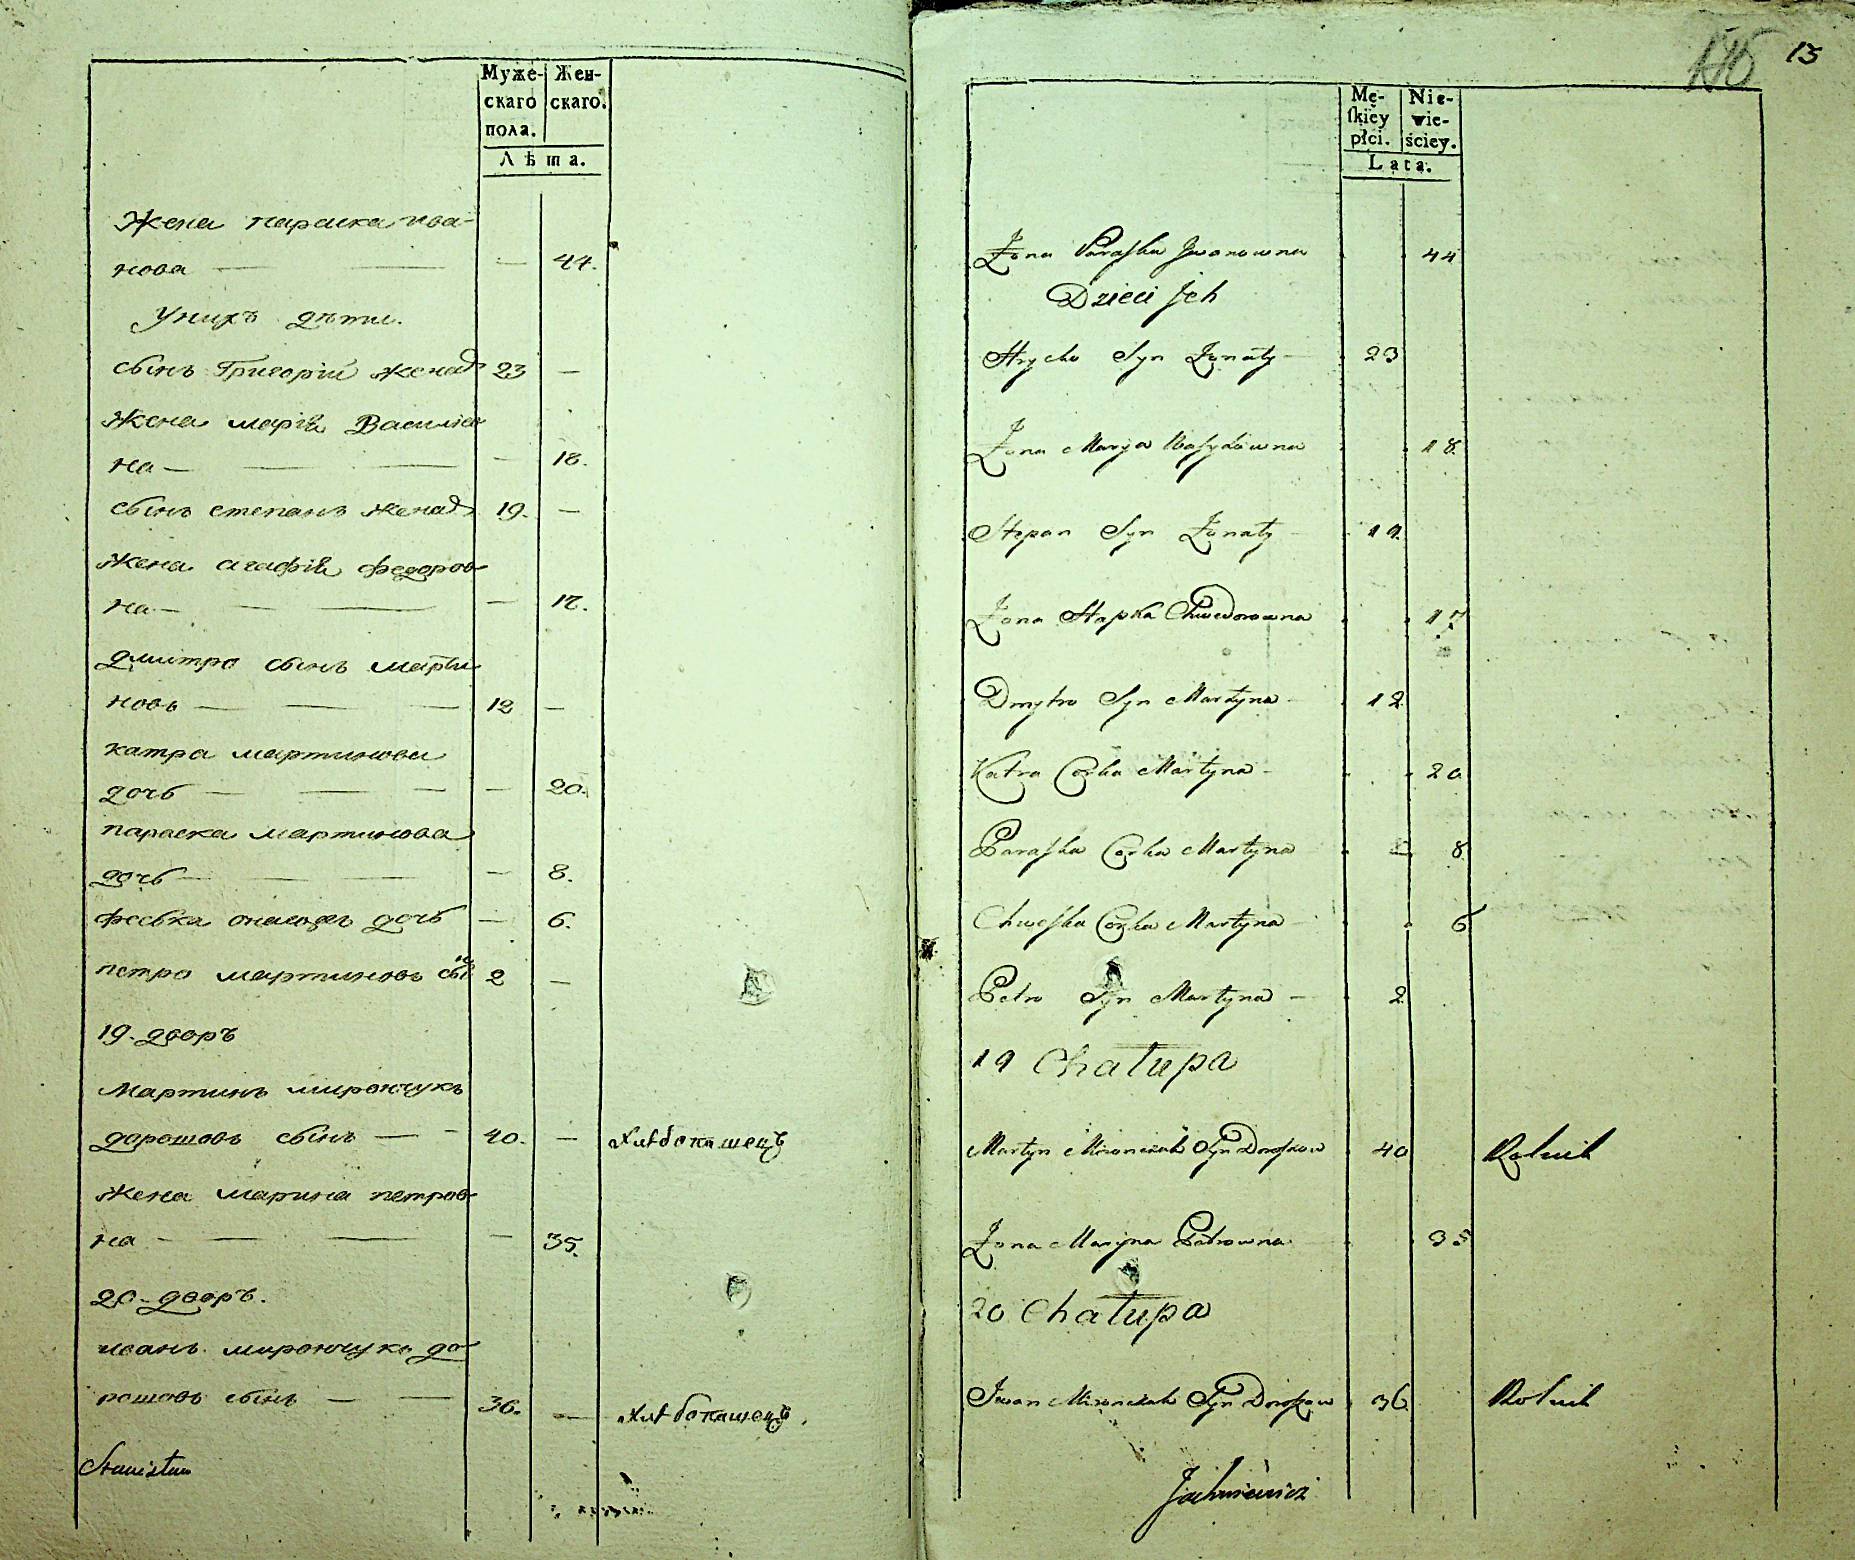 Муже-
скаго
пола.
Жен-
скаго.
Лѣта.
Жена параска ива-
нова — — — 44.
Унихъ дѣти.
сынъ Григорий женад 23 —
Жена мария Василіев
на — — — 18.
сынъ степанъ женад 19. —
Жена агафія федоров
на — — — — 17.
дмитро сынъ марти
новъ — — — 12 —
катра мартинова
дочь — — — — 20.
параска мартинова
дочь — — — — 8.
феська дочь — 6.
петро мартиновъ сынъ 2 —
19. дворъ
Мартинъ мирончукъ
дорошовъ сынъ — - 40. — Хлѣбопашецъ
Жена марина петров
на - — — — 35.
20 - дворъ.
иванъ мирончукъ до
рошовъ сынъ — — 36. — Хлѣбопашецъ.
Stanisław
15
Mę-
ſkiey
płci.
Nie-
wie-
ściey.
Lata.
Żona Paraſka Jwanowna 44
Dzieci Jch
Hrycko Syn Żonaty — 23
Żona Marya Waſylowna 18.
Stepan Syn Żonaty — 19.
Żona Hapka Chwedorowna 17
Dmytro Syn Martyna — 12
Katra Corka Martyna — 20
Paraſka Corka Martyna 8
Chweſka Corka Martyna 6
Petro Syn Martyna — 2
19 Chałupa
Martyn Mironczuk Syn Doroſzow 40 Rolnik
Żona Maryna Petrowna 35
20 Chałupa
Jwan Mironczuk Syn Doroſzow 36 Rolnik
Jachniewicz